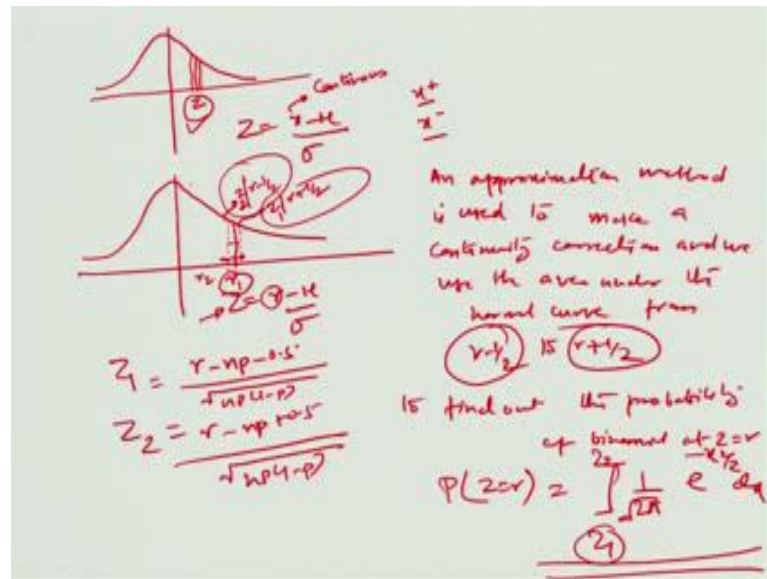 Z
Continuous
Z = x - μ / σ
x+
x-
r - 1/2
r + 1/2
r1
Z = r - μ / σ
Z1 = r - np - 0.5 / √np(1-p)
Z2 = r - np + 0.5 / √np(1-p)
An approximation method
is used to make a
continuity correction and we
use the area under the
normal curve from
r-1/2 to r+1/2
to find out the probability
of binomial at Z=r
P(Z=r) = ∫ Z1 Z2 1/√2π e -x²/2 dx